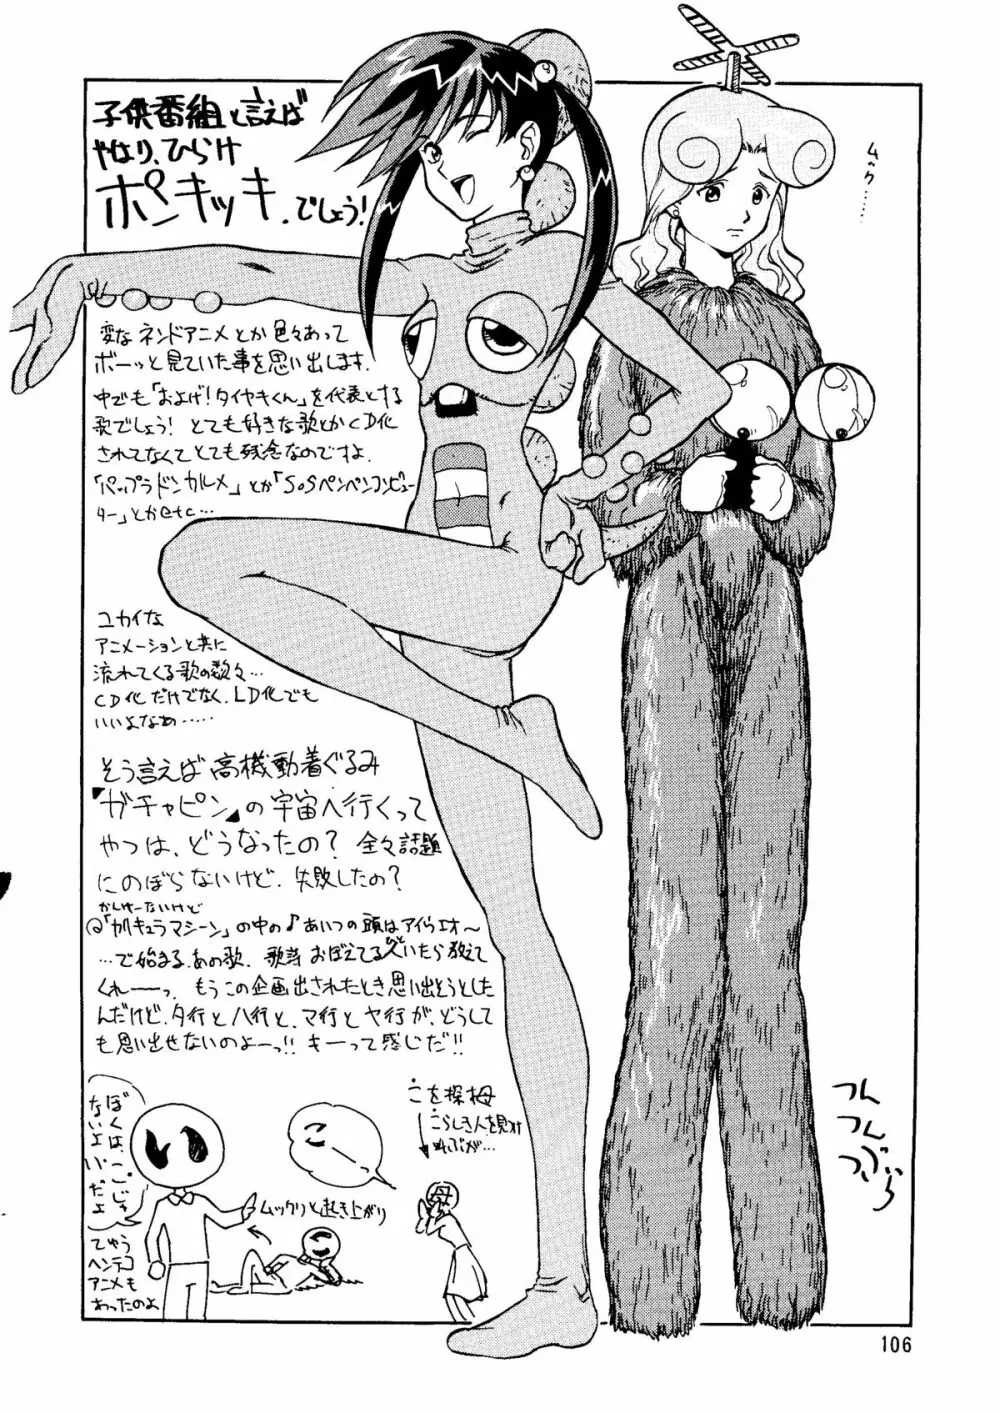 子供番組と言えば
やはり、ひらけ
ポンキッキ.でしょう!
ムック……
変なネンドアニメとか色々あって
ボーッと見ていた事を思い出します.
中でも「およげ!タイヤキくん」を代表とする
歌でしょう! とても好きな歌とかCD化
されてなくてとても残念なのですよ.
「パップラドンカルメ」とか「SOSペンペンコンピュー
ター」とかetc…
ユカイな
アニメーションと共に
流れてくる歌の数々…
CD化だけでなく、LD化でも
いいよなぁ……
そう言えば高機動着ぐるみ
『ガチャピン』の宇宙へ行くって
やつは、どうなったの? 全々話題
にのぼらないけど、失敗したの?
かんけーないけど
@「カリキュラマシーン」の中の♪あいつの頭はアイウエオ〜
…で始まる、あの歌、歌詞おぼえてる人いたら教えて
くれーっ、もうこの企画出されたとき思い出そうとした
んだけど、タ行とハ行と、マ行とヤ行が、どうして
も思い出せないのよーっ!! キーって感じだ!!
ぼくは、こ.じゃ
ないよい.だよ
てゅう
ヘンテコ
アニメも
あったのよ
い
こ
ムックリと起き上がり
こ
こを探母
こらしき人を見つけ
母
つん
つん
つぶぃら
106